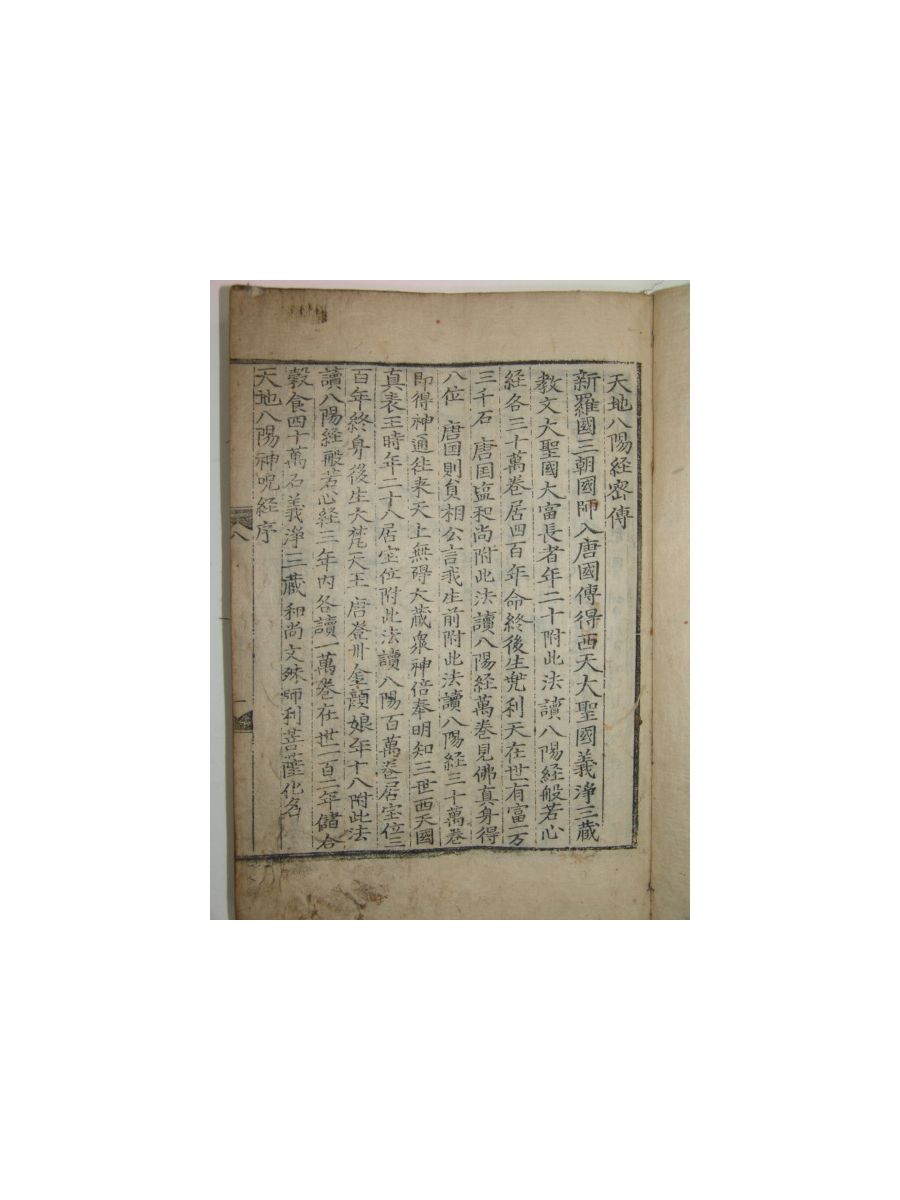 天地八陽経密傳
新羅國三朝國師入唐國傳得西天大聖國義淨三藏
教文大聖國大富長者年二十附此法讀八陽経般若心
経各三十萬卷居四百年命終後生兜利天在世有富一万
三千石 唐国塩和尚附此法讀八陽経萬卷見佛真身得
八位 唐国則貧相公言我生前附此法讀八陽経三十萬卷
即得神通往来天上無碍大藏衆神倍奉明知三世西天國
真表王時年二十八居宝位附此法讀八陽百萬卷居宝位三
百年終身後生大梵天王 唐登州金顔娘年十八附此法
讀八陽経般若心経三年內各讀一萬卷在世一百二年儲合
穀食四十萬石義淨三藏和尚文殊師利菩薩化名
天地八陽神呪経序
八
一